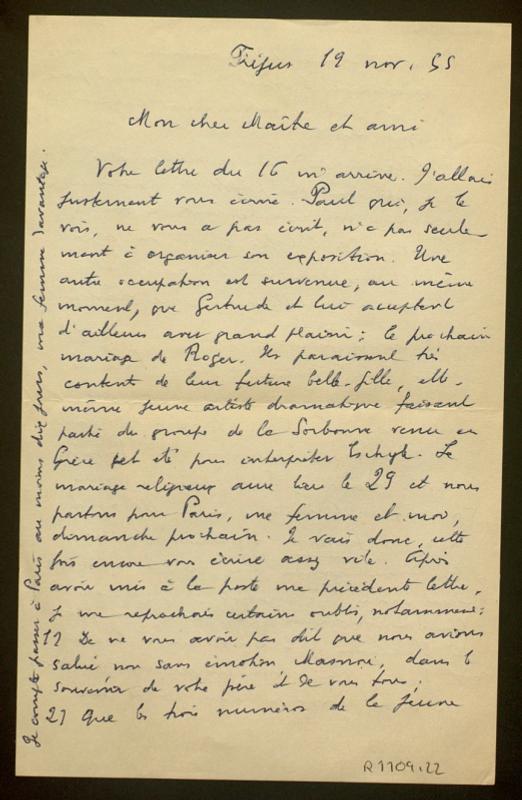 Fréjus 19 nov. 55
Mon cher Maître et ami
Votre lettre du 16 m'arrive. J'allais
justement vous écrire. Paul qui, je le
vois, ne vous a pas écrit, n'a pas seule-
ment à organiser son exposition. Une
autre occupation est survenue, au même
moment, que Gertrude et lui acceptent
d'ailleurs avec grand plaisir : le prochain
mariage de Roger. Ils paraissent très
content de leur future belle-fille, elle-
même jeune artiste dramatique faisant
partie du groupe de la Sorbonne venu en
Grèce cet été pour interpréter Eschyle. Le
mariage religieux aura lieu le 29 et nous
partons pour Paris, ma femme et moi,
dimanche prochain. Je vais donc, cette
fois encore vous écrire assez vite. Après
avoir mis à la poste ma précédente lettre,
je me reprochais certains oublis, notamment :
1) De ne vous avoir pas dit que nous avions
salué non sans émotion, dans le
souvenir de votre père et de vous tous.
2) Que les trois numéros de la Jeune
Je compte passer à Paris au moins dix jours, ma femme davantage.
R1109.22